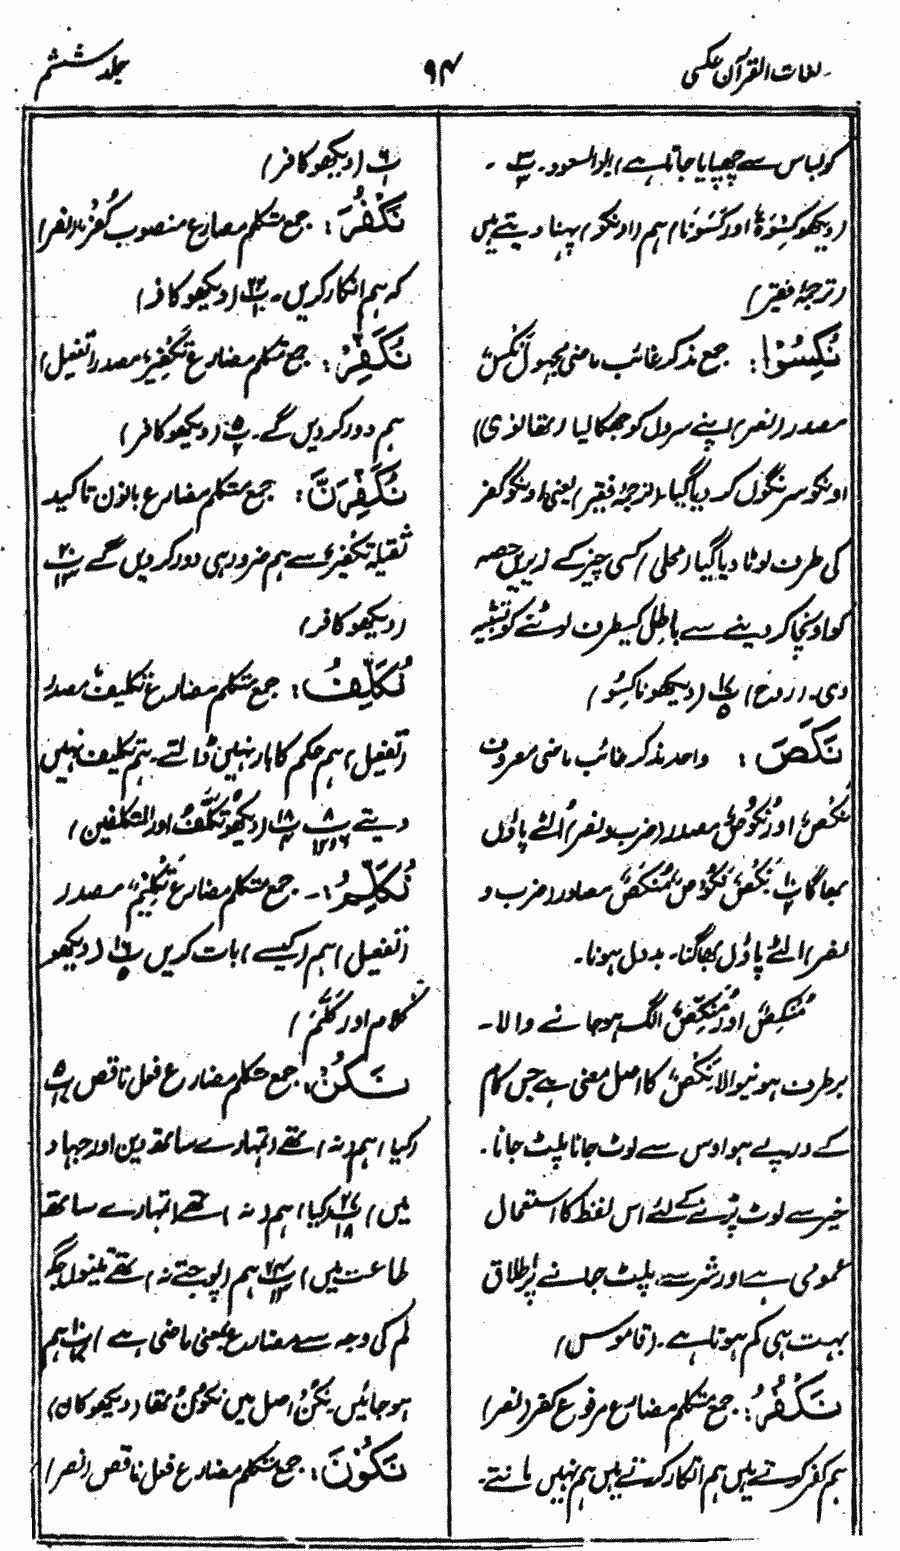 لغات القرآن عکسی
۹۴
جلد ششم
کو لباس سے چھپایا جاتا ہے (ابوالسعود۔ پ۳
(دیکھو کِسْوَۃٌ اور کَسَوْنَا) ہم (اونکو) پہنا دیتے ہیں
(ترجمۂ فقیر)
نُکِسُوْا: جمع مذکر غائب ماضی مجہول نَکْسٌ
مصدر (نصر) اپنے سر دل کو جھکا لیا (تھانوی)
اونکو سرنگوں کر دیا گیا (ترجمۂ فقیر) یعنی اونکو کفر
کی طرف لوٹا دیا گیا (محلی) کسی چیز کے زیریں حصہ
کو اونچا کر دینے سے باطل کیطرف لوٹنے کو تشبیہ
دی۔ (روح) پ۱۷ ۵ (دیکھو ناکِسُو)
نَکَصَ: واحد مذکر غائب ماضی معروف
نَکْصٌ اور نُکُوْصٌ مصدر (ضرب و نصر) الٹے پاؤں
بھاگا پ۱۰ ۲ نَکْصٌ نُکُوْصٌ مَنْکَصٌ مصادر (ضرب و
نصر) الٹے پاؤں بھاگنا۔ بد دل ہونا۔
مُنْکِصٌ اور مُنَکِّصٌ الگ ہو جانے والا۔
برطرف ہونیوالا نَکْصٌ کا اصل معنی ہے جس کام
کے درپے ہو اوس سے لوٹ جانا پلٹ جانا۔
خیر سے لوٹ پڑنے کے لئے اس لفظ کا استعمال
عمومی ہے اور شر سے پلٹ جانے پر اطلاق
بہت ہی کم ہوتا ہے۔ (قاموس)
نَکْفُرُ: جمع متکلم مضارع مرفوع کفر (نصر)
ہم کفر کرتے ہیں ہم انکار کرتے ہیں ہم نہیں مانتے۔
پ۶ ۱ (دیکھو کافر)
نَکْفُرَ: جمع متکلم مضارع منصوب کُفْرٌ (نصر)
کہ ہم انکار کریں۔ پ۲۲ ۱۰ (دیکھو کافر)
نُکَفِّرْ: جمع متکلم مضارع تَکْفِیْرٌ مصدر (تفعیل)
ہم دور کر دیں گے۔ پ۵ ۲ (دیکھو کافر)
نُکَفِّرَنَّ: جمع متکلم مضارع بانون تاکید
ثقیلہ تکفیرٌ سے ہم ضرور ہی دور کر دیں گے پ۲۰ ۱۳
(دیکھو کافر)
نُکَلِّفُ: جمع متکلم مضارع تکلیف مصدر
(تفعیل) ہم حکم کا بار نہیں ڈالتے۔ ہم تکلیف نہیں
دیتے پ۸ ۱۲،۶ پ۱۸ ۴ (دیکھو تُکَلَّفُ اور المتکلفین)
نُکَلِّمُ:۔ جمع متکلم مضارع تَکْلِیْمٌ مصدر
(تفعیل) ہم (کیسے) بات کریں پ۱۶ ۵ (دیکھو
کلام اور کَلَّمَ)
نَکُنْ: جمع متکلم مضارع فعل ناقص پ۵
(کیا) ہم (نہ) تھے (تمہارے ساتھ دین اور جہاد
میں) پ۲۷ ۱۸ (کیا) ہم (نہ) تھے (تمہارے ساتھ
طاعت میں) پ ہم (پوجتے نہ) تھے تینوں جگہ
لم کی وجہ سے مضارع بمعنی ماضی ہے) پ۱۰ ہم
ہو جائیں نَکُنْ اصل میں نَکُوْنُ تھا (دیکھو کان)
نَکُوْنَ: جمع متکلم مضارع فعل ناقص (نصر)